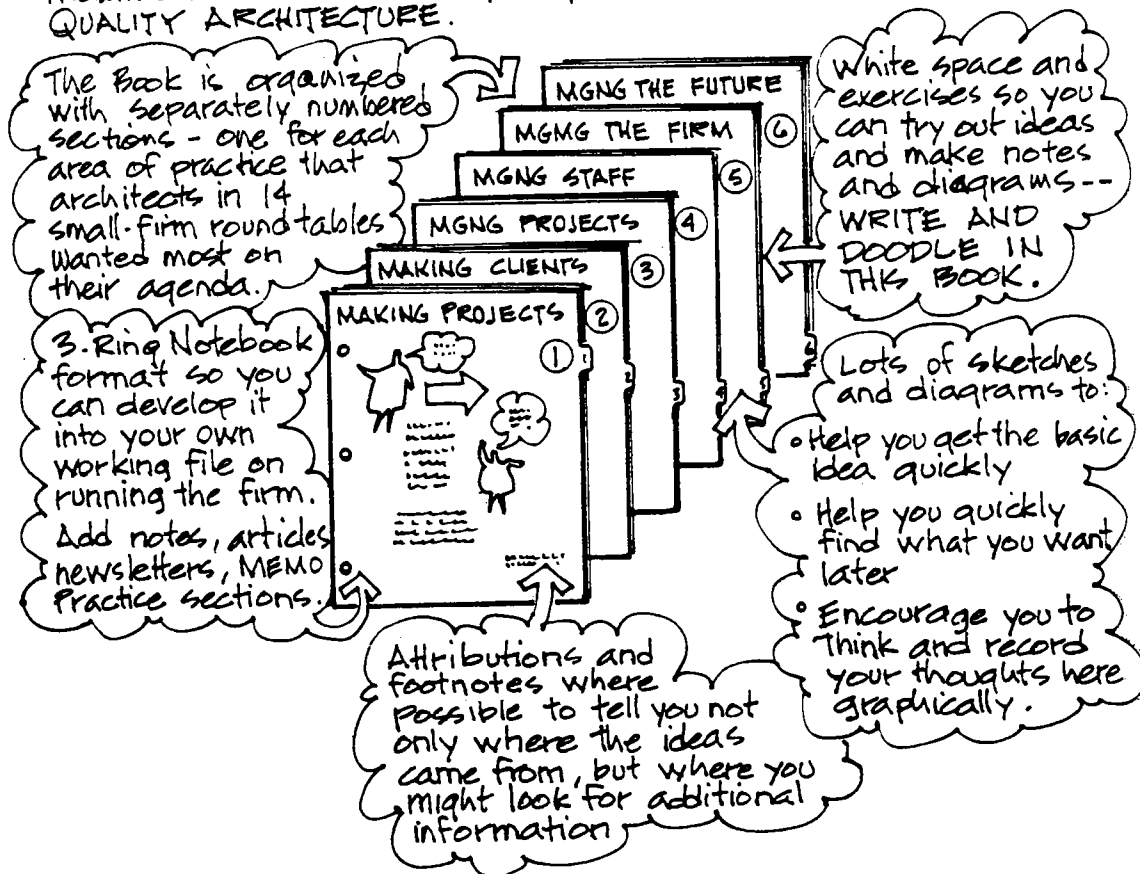 QUALITY ARCHITECTURE.
The Book is organized
with separately numbered
sections - one for each
area of practice that
architects in 14
small-firm roundtables
wanted most on
their agenda.
3-Ring Notebook
format so you
can develop it
into your own
working file on
running the firm.
Add notes, articles
newsletters, MEMO
Practice sections.
MGNG THE FUTURE
MGMG THE FIRM
6
MGNG STAFF
5
MGNG PROJECTS
4
MAKING CLIENTS
3
MAKING PROJECTS
2
1
1
2
3
4
White space and
exercises so you
can try out ideas
and make notes
and diagrams--
WRITE AND
DOODLE IN
THIS BOOK.
Lots of sketches
and diagrams to:
• Help you get the basic
idea quickly
• Help you quickly
find what you want
later
• Encourage you to
Think and record
your thoughts here
graphically.
Attributions and
footnotes where
possible to tell you not
only where the ideas
came from, but where you
might look for additional
information